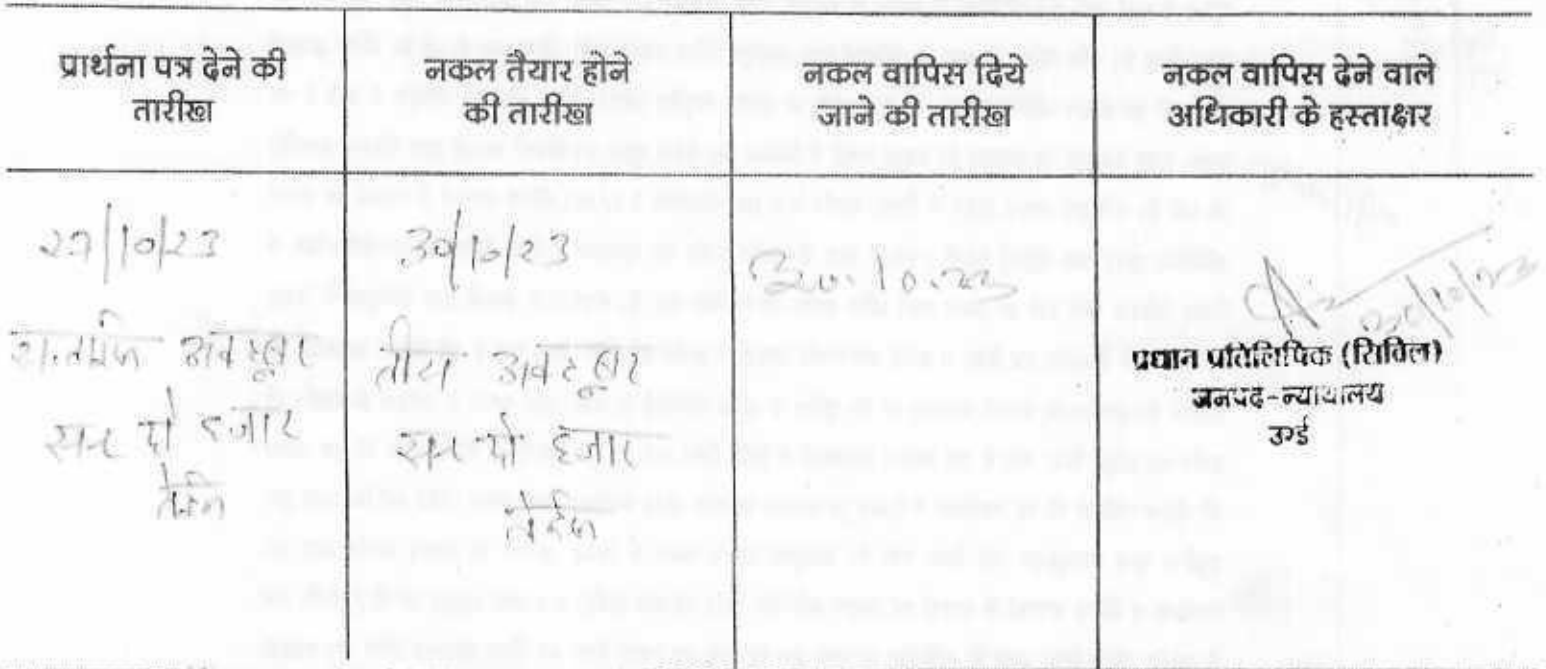 प्रार्थना पत्र देने की
तारीख
नकल तैयार होने
की तारीख
नकल वापिस दिये
जाने की तारीख
नकल वापिस देने वाले
अधिकारी के हस्ताक्षर
27/10/23
अक्टूबर
सन दो हजार
30/10/23
तीस अक्टूबर
सन दो हजार
30.10.23
प्रधान प्रतिलिपिक (सिविल)
जनपद-न्यायालय